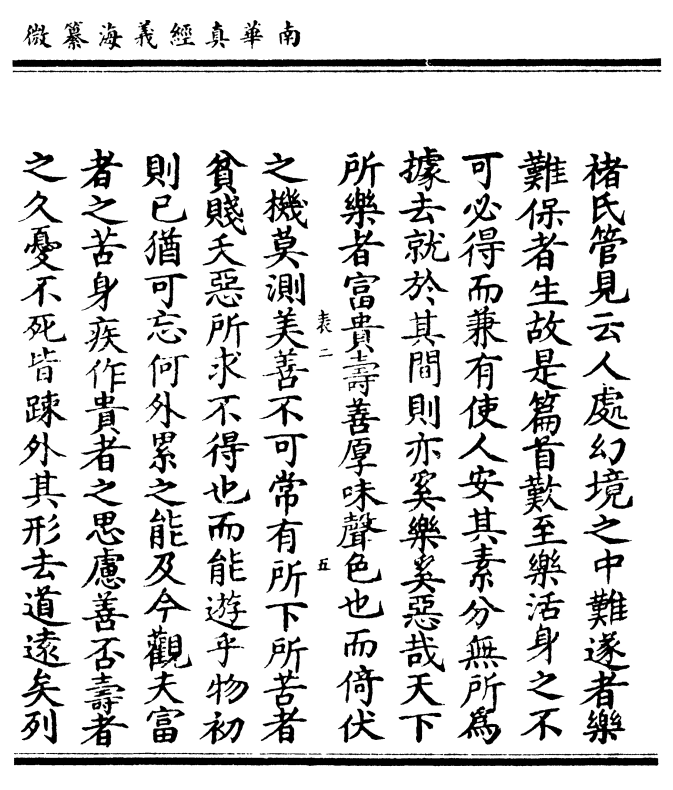 南華真經義海纂微
褚氏管見云人處幻境之中難遂者樂
難保者生故是篇首歎至樂活身之不
可必得而兼有使人安其素分無所為
據去就於其間則亦奚樂奚惡哉天下
所樂者富貴壽善厚味聲色也而倚伏
表二
五
之機莫測美善不可常有所下所苦者
貧賤夭惡所求不得也而能遊乎物初
則已猶可忘何外累之能及今觀夫富
者之苦身疾作貴者之思慮善否壽者
之久憂不死皆踈外其形去道遠矣列